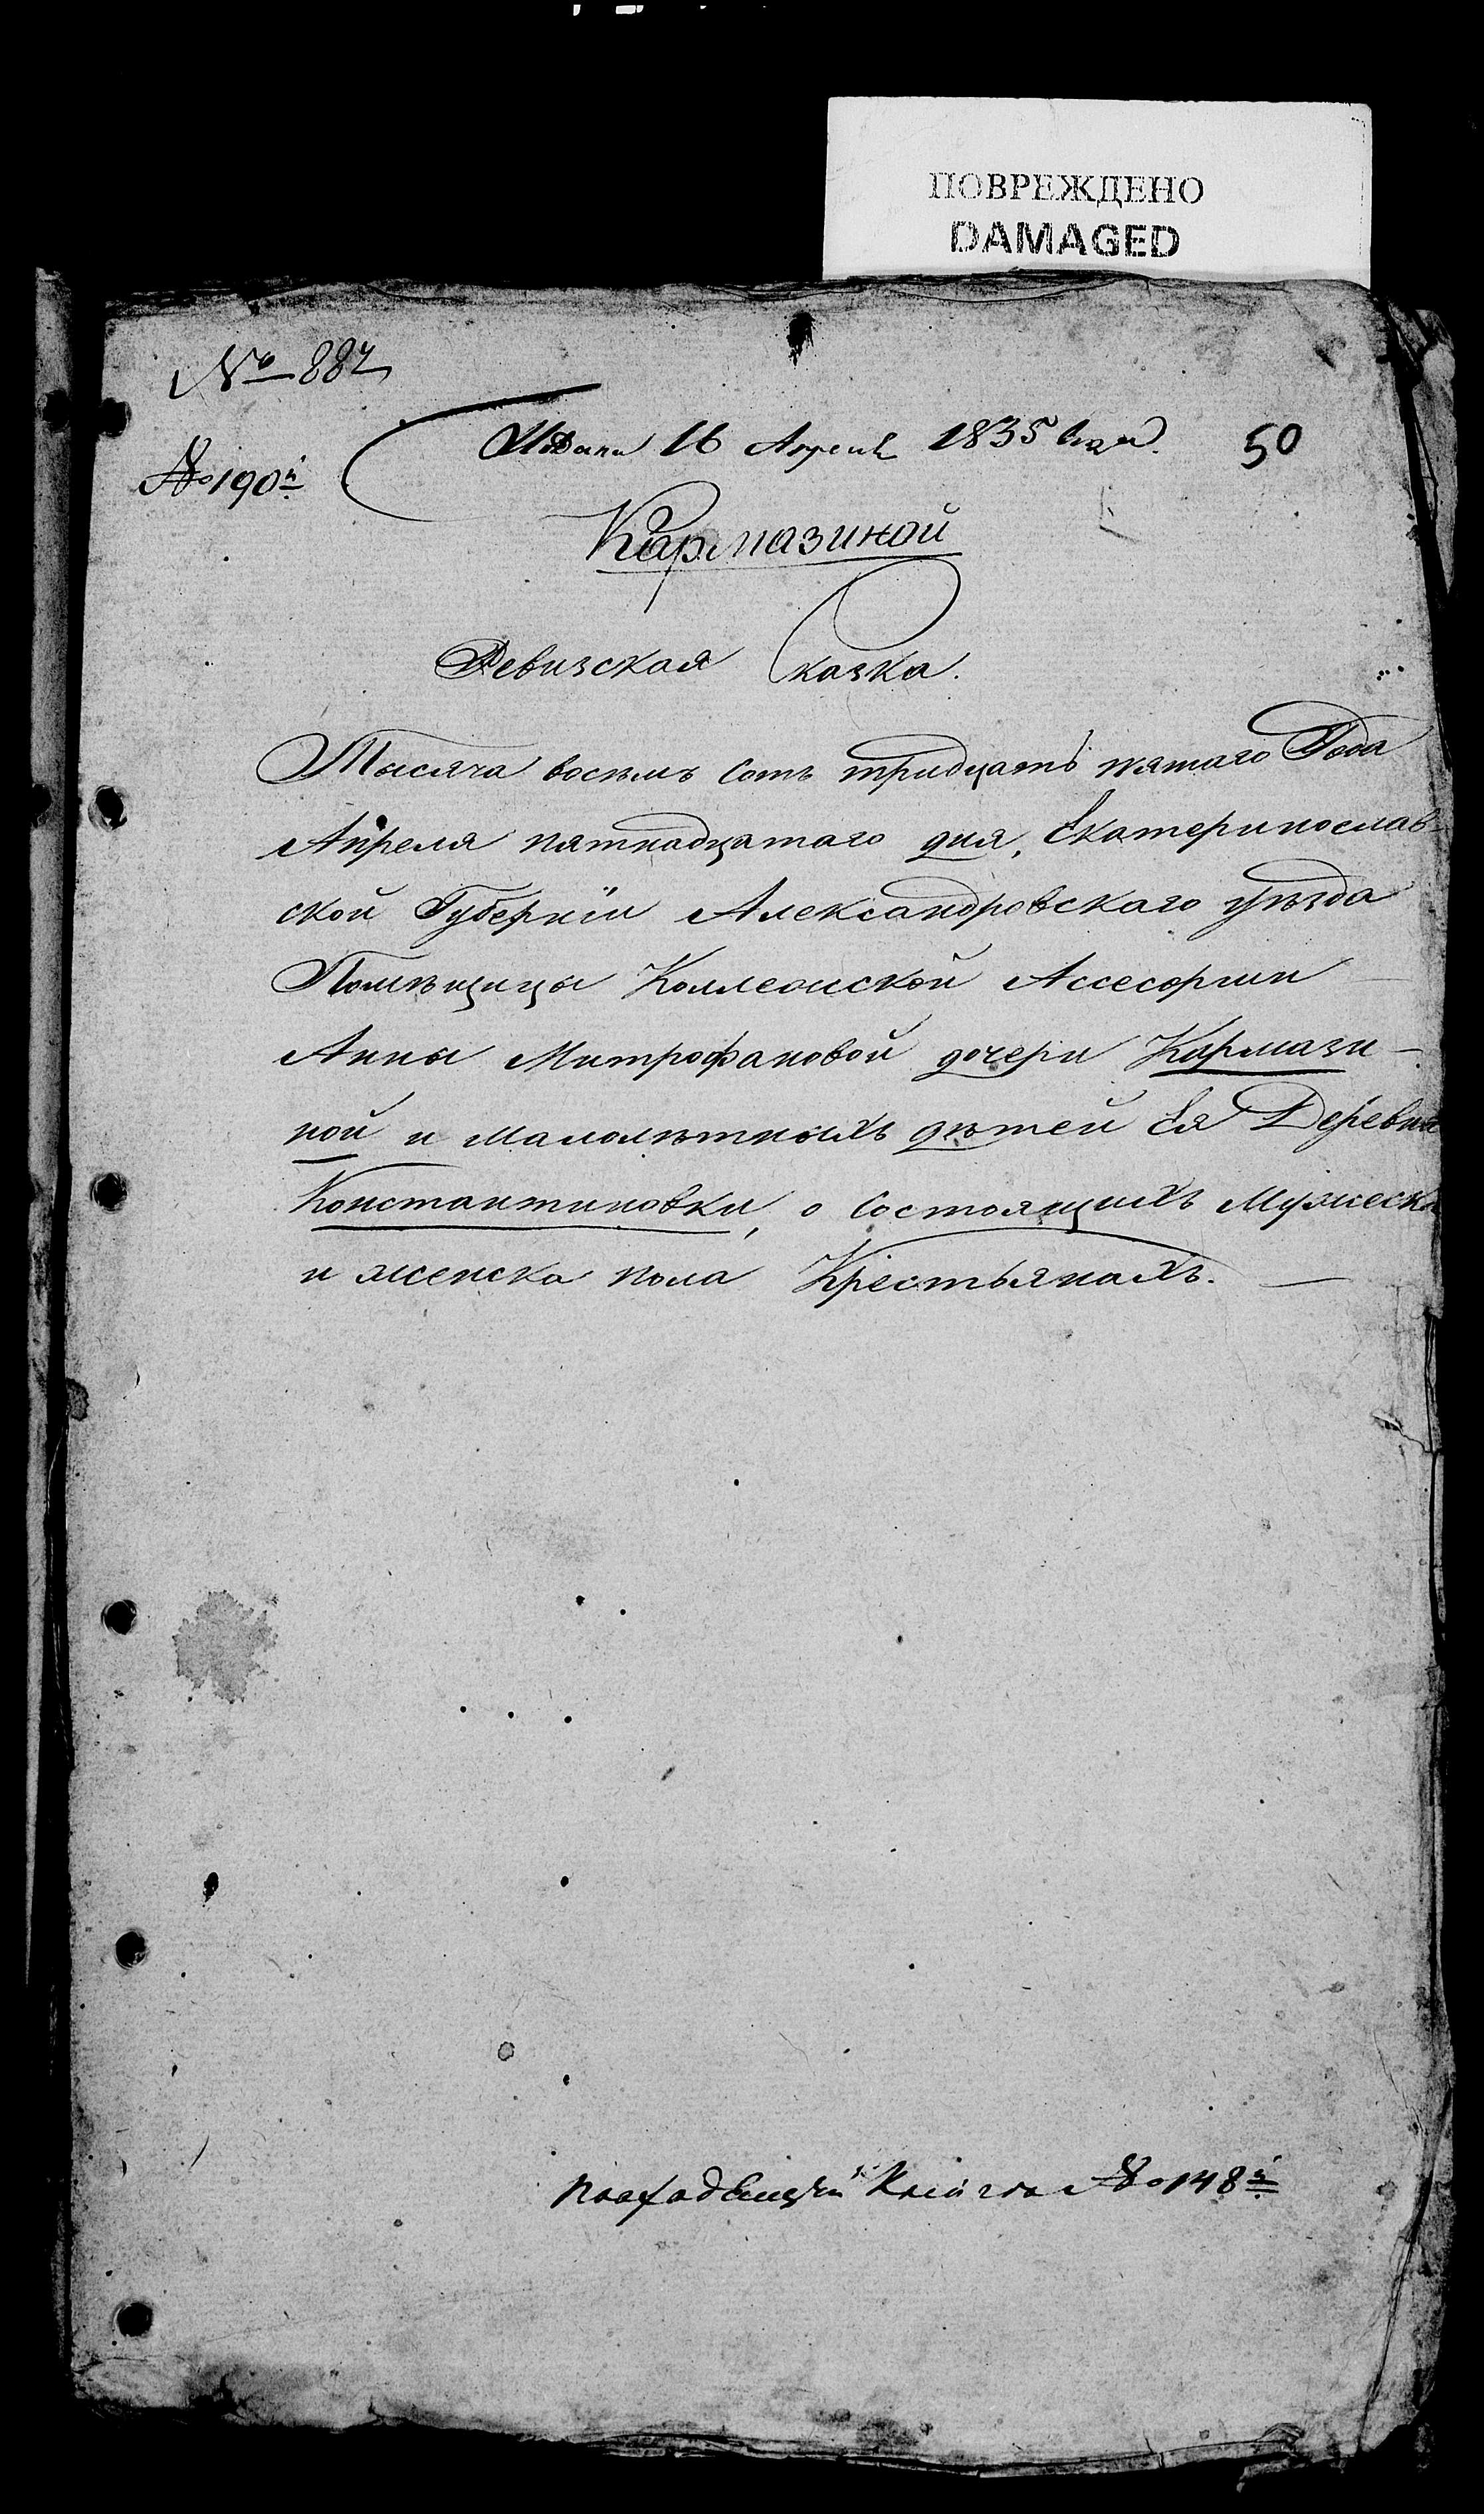 ПОВРЕЖДЕНО
DAMAGED
№ 887
Подана 16 Апреля 1835 года.
50
№ 190й
Кармазиной
Ревизская Сказка.
Тысяча восемь сотъ тридцать пятаго Года
Апреля пятнадцатаго дня, Екатеринослав-
ской Губерніи Александровскаго уѣзда
Помѣщицы Коллежской Ассесорши
Анны Митрофановой дочери Кармази-
ной и малолѣтныхъ дѣтей Ея Деревни
Константиновки, о Состоящихъ Мужеска
и женска пола Крестьянахъ.
Книга № 148й